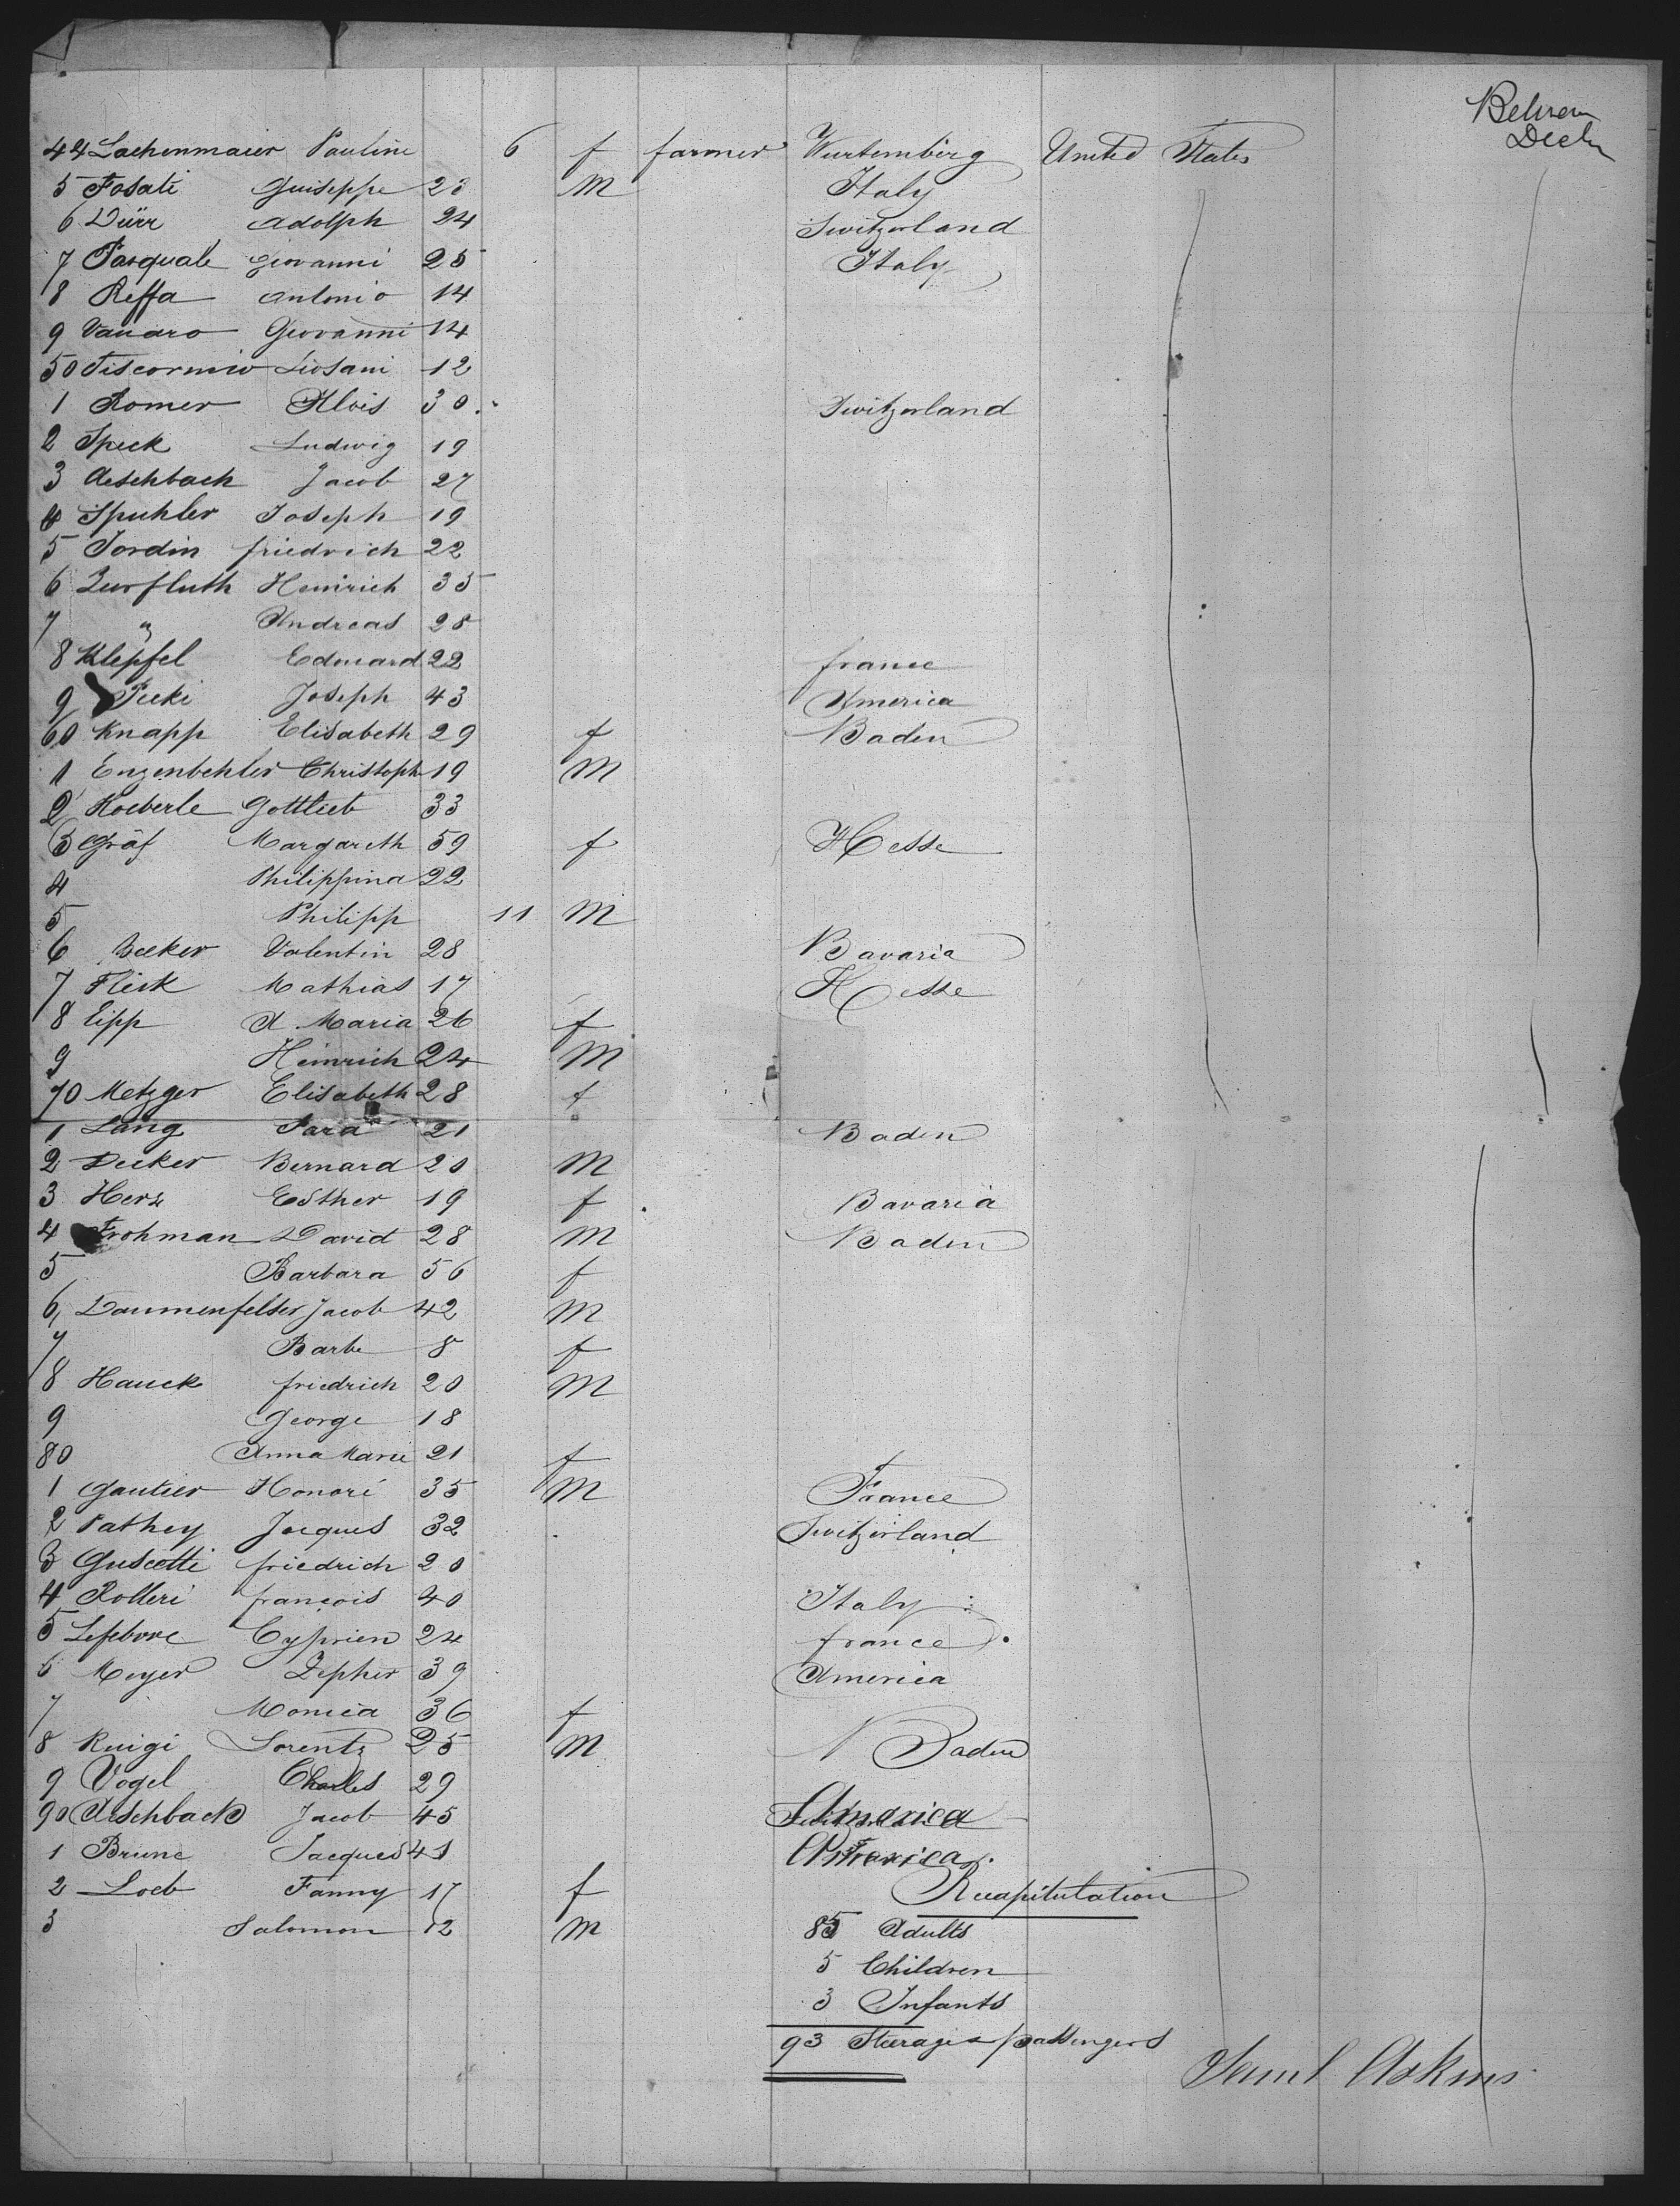 Between
Decks
44 Lachenmaier Pauline 6 f farmer Wurtemberg United States
5 Fosati Guiseppe 23 M Italy
6 Dürr Adolph 24 Switzerland
7 Pasquale Giovanni 25 Italy
8 Reffa Antonio 14
9 Vanaro Giovanni 14
50 Tiscornio 12
1 Romer Alois 30 Switzerland
2 Speck Ludwig 19
3 Aeschbach Jacob 27
4 Spuhler Joseph 19
5 Jordin friedrich 22
6 Zurfluth Heinrich 35
7 " Andreas 28
8 Klepfel Edouard 22 france
9 Joseph 43 America
60 Knapp Elisabeth 29 f Baden
1 Enzenbehler Christoph 19 M
2 Koeberle Gottlieb 33
3 Gräf Margareth 59 f Hesse
4 Philippina 22
5 Philipp 11 M
6 Becker Valentin 28 Bavaria
7 Fleik Mathias 17 Hesse
8 Eipp A. Maria 26 f
9 Heinrich 24 M
70 Metzger Elisabeth 28 f
1 Lang Sara 21 Baden
2 Decker Bernard 20 M
3 Herz Esther 19 f Bavaria
4 Frohman David 28 M Baden
5 Barbara 56 f
6 Daumenfelser Jacob 42 M
7 Barbe 8 f
8 Hauck friedrich 20 M
9 George 18
80 Anna Marie 21 f
1 Gautier Honoré 35 M France
2 Pathey Jacques 32 Switzerland
3 Guscetti friedrich 20
4 Rolleri françois 40 Italy
5 Lefebvre Cyprien 24 france
6 Meyer Zepher 39 America
7 Monica 36 f
8 Ruigi Lorentz 25 M Baden
9 Vogel Charles 29
90 Aeschbach Jacob 45 America
1 Brune Jacques 41 America
2 Loeb Fanny 17 f Recapitulation
3 Salomon 12 M 85 Adults
5 Children
3 Infants
93 Steerage passengers
Saml Askins